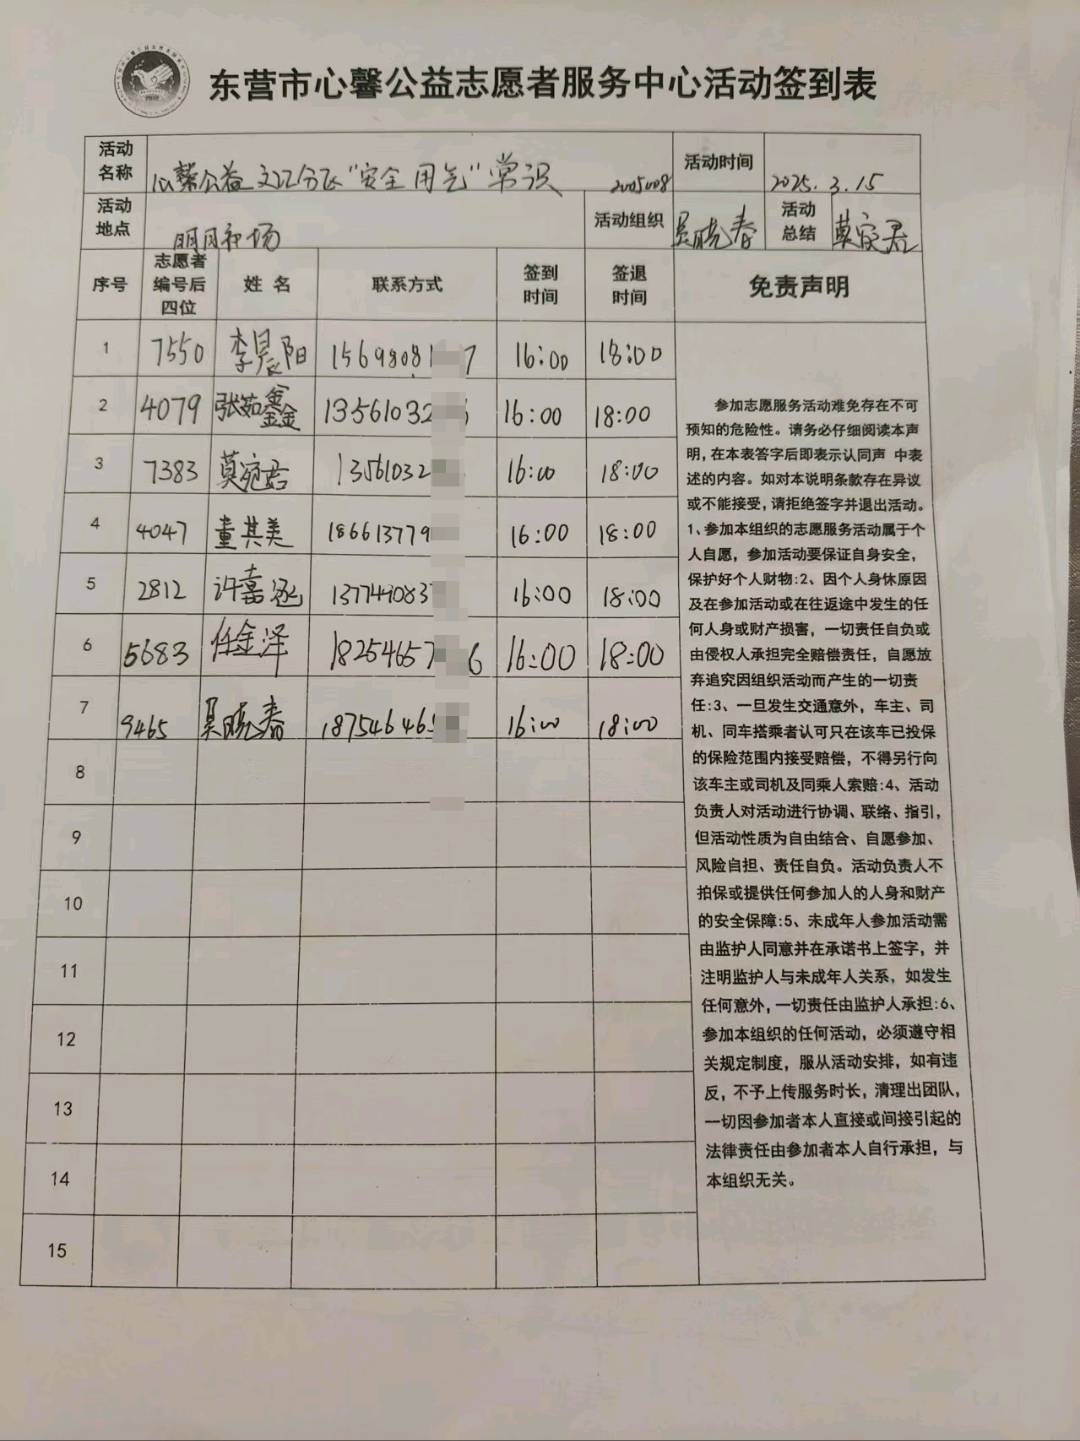 东营市心馨公益志愿者服务中心活动签到表
活动名称 心馨公益文汇分队"安全用气"常识 2005008 活动时间 2025.3.15
活动地点 明月广场 活动组织 吴晓春 活动总结 莫宛君
序号 志愿者编号后四位 姓名 联系方式 签到时间 签退时间 免责声明
1 7550 李晨阳 15698081 7 16:00 18:00
2 4079 张茹鑫 13561032 16:00 18:00
3 7383 莫宛君 13561032 16:00 18:00
4 4047 董其美 186613779 16:00 18:00
5 2812 许嘉涵 137749083 16:00 18:00
6 5683 任金泽 18254657 6 16:00 18:00
7 9465 吴晓春 18754646 16:00 18:00
8
9
10
11
12
13
14
15
参加志愿服务活动难免存在不可
预知的危险性。请务必仔细阅读本声
明,在本表签字后即表示认同声 中表
述的内容。如对本说明条款存在异议
或不能接受,请拒绝签字并退出活动。
1、参加本组织的志愿服务活动属于个
人自愿，参加活动要保证自身安全,
保护好个人财物:2、因个人身休原因
及在参加活动或在往返途中发生的任
何人身或财产损害，一切责任自负或
由侵权人承担完全赔偿责任，自愿放
弃追究因组织活动而产生的一切责
任:3、一旦发生交通意外，车主、司
机、同车搭乘者认可只在该车已投保
的保险范围内接受赔偿，不得另行向
该车主或司机及同乘人索赔:4、活动
负责人对活动进行协调、联络、指引,
但活动性质为自由结合、自愿参加、
风险自担、责任自负。活动负责人不
拍保或提供任何参加人的人身和财产
的安全保障:5、未成年人参加活动需
由监护人同意并在承诺书上签字，并
注明监护人与未成年人关系，如发生
任何意外,一切责任由监护人承担:6、
参加本组织的任何活动，必须遵守相
关规定制度，服从活动安排，如有违
反，不予上传服务时长，清理出团队,
一切因参加者本人直接或间接引起的
法律责任由参加者本人自行承担，与
本组织无关。